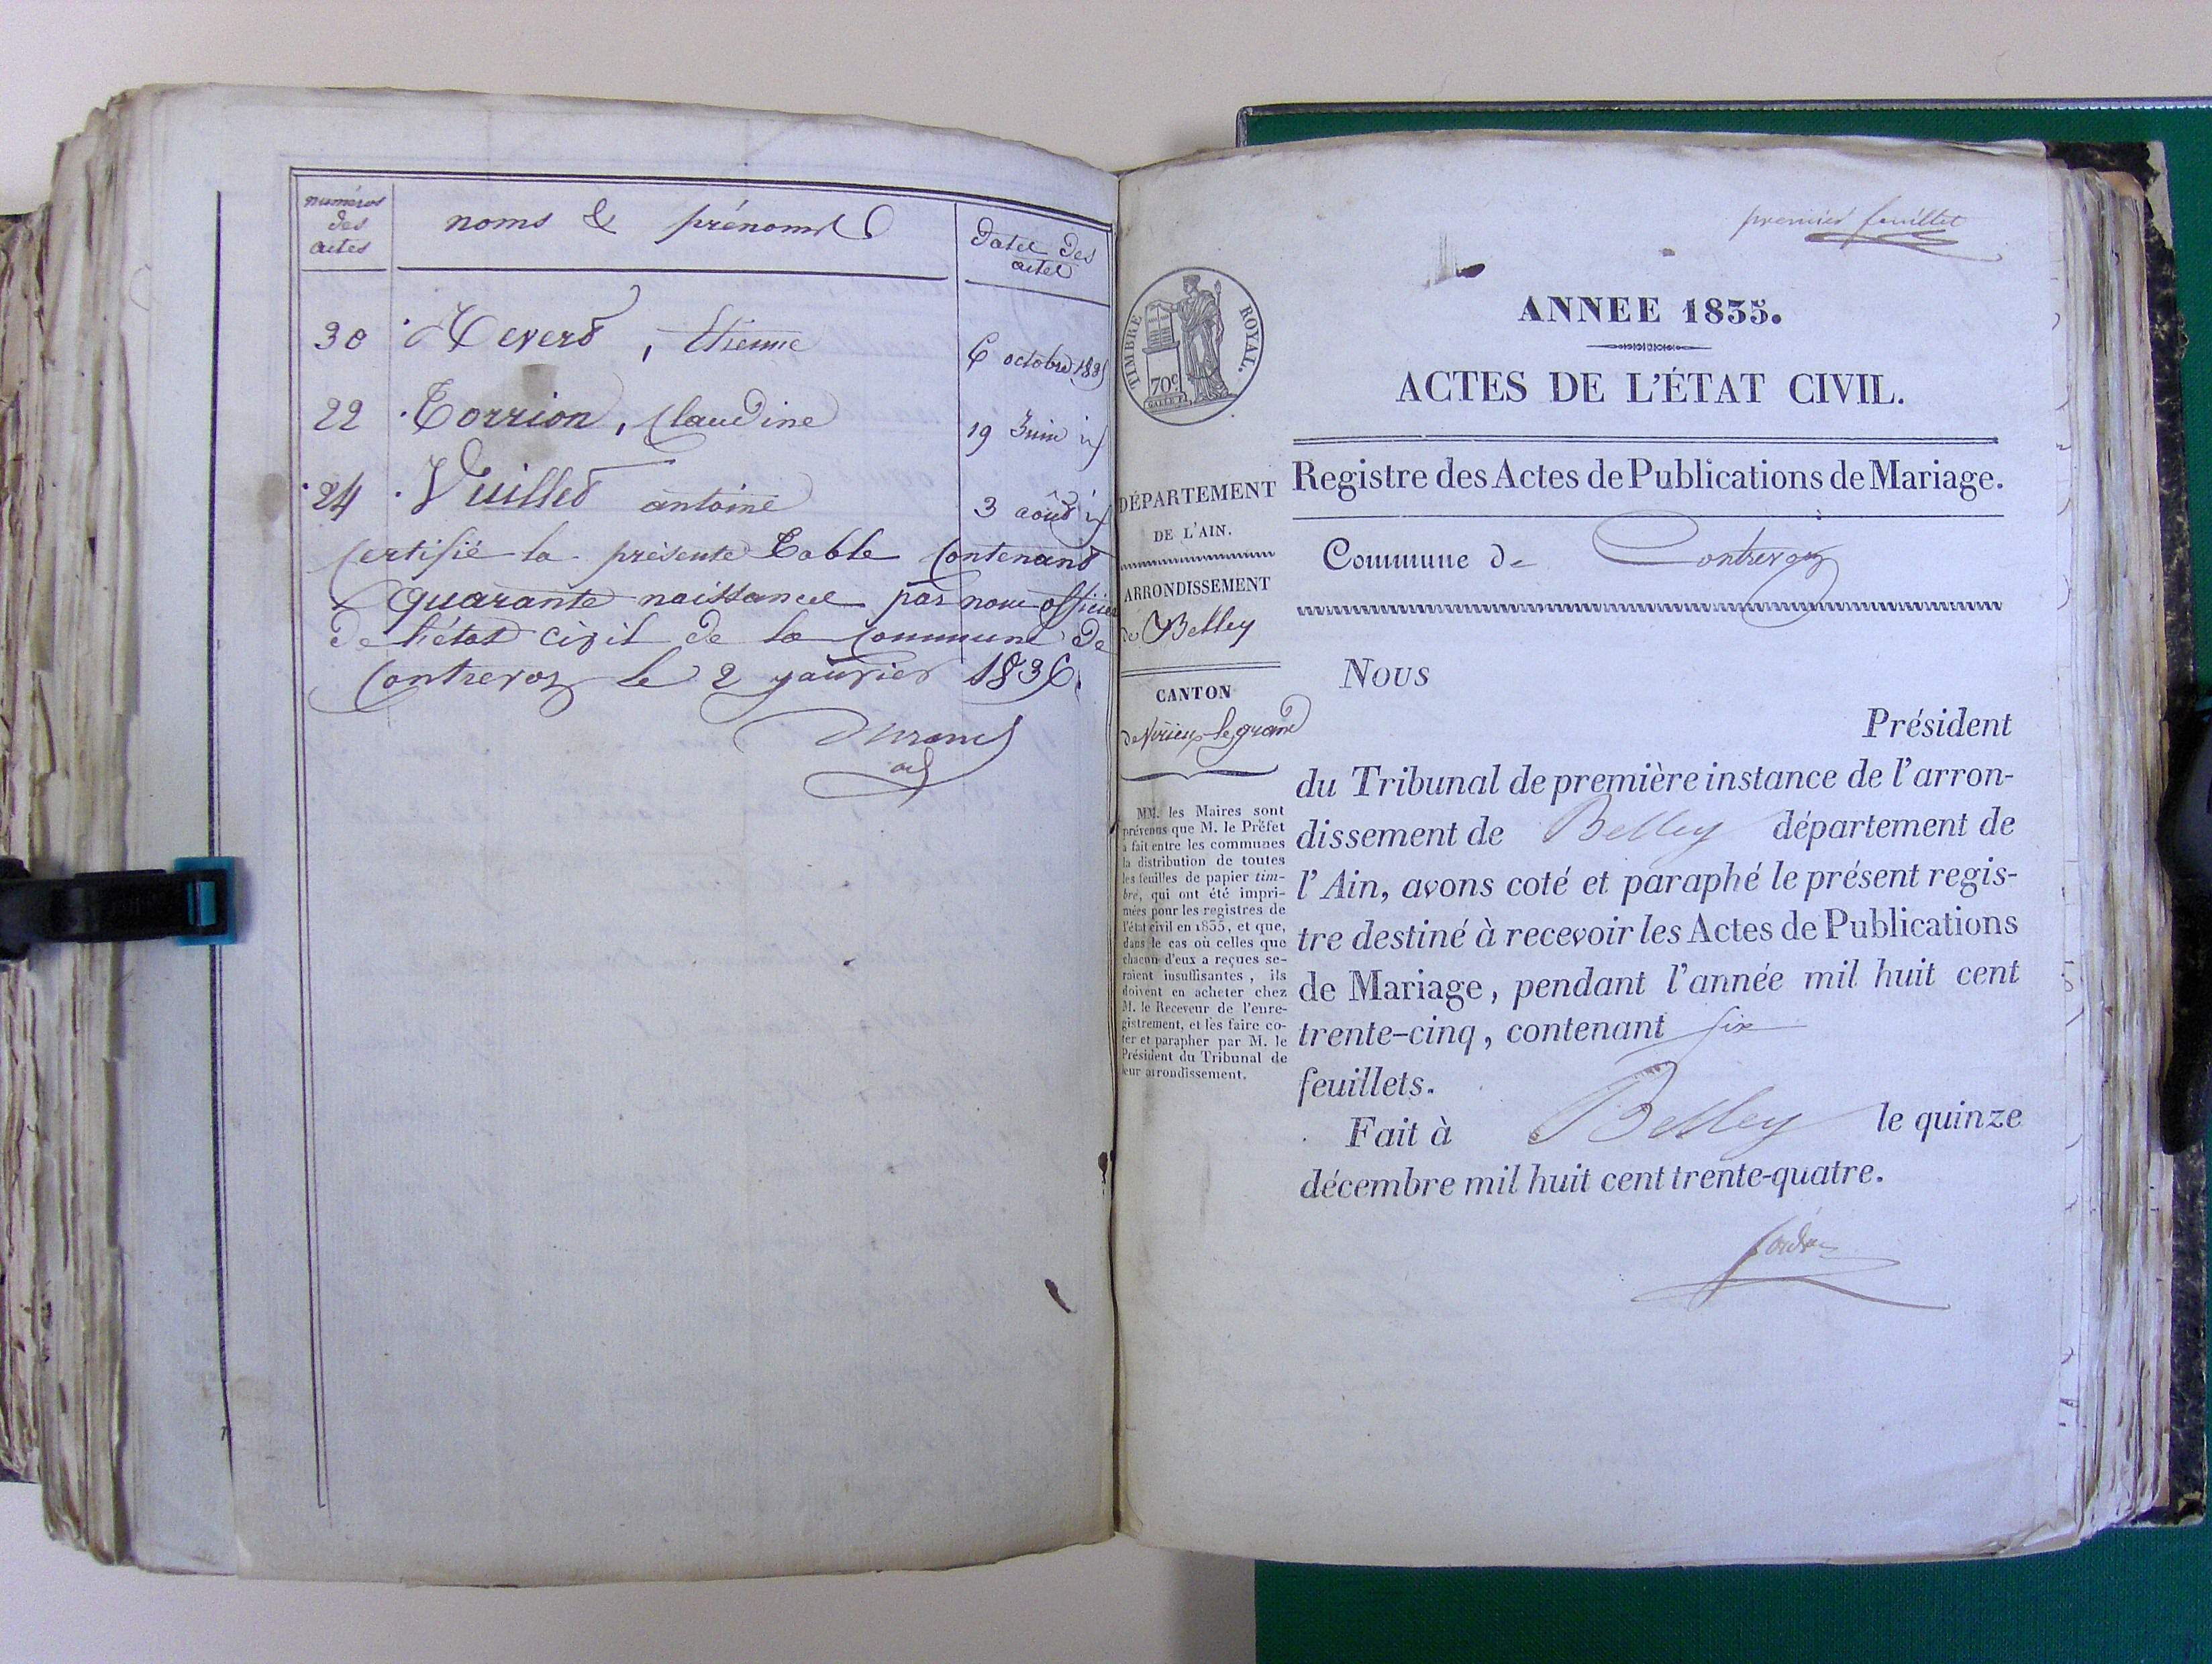 numéros
des
actes
noms & prénoms
Dates des
actes
30 Revers, Etienne
6 octobre 1835
22 Torrion, Claudine
19 Juin id
24 Vuilled antoine
3 août id
Certifié la présente Table Contenand
quarante naissances par nous officier
de l'état civil de la Commune de
Contrevoz le 2 janvier 1836.
Durand
adj
premier feuillet
TIMBRE ROYAL.
70c
ANNEE 1835.
ACTES DE L'ÉTAT CIVIL.
Registre des Actes de Publications de Mariage.
Commune de Contrevoz
DÉPARTEMENT
DE L'AIN.
ARRONDISSEMENT
de Belley
CANTON
de Virieux-le-grand
MM. les Maires sont
prévenus que M. le Préfet
a fait entre les communes
la distribution de toutes
les feuilles de papier tim-
bré, qui ont été impri-
mées pour les registres de
l'état civil en 1835, et que,
dans le cas où celles que
chacun d'eux a reçues se-
raient insuffisantes, ils
doivent en acheter chez
M. le Receveur de l'enre-
gistrement, et les faire co-
ter et parapher par M. le
Président du Tribunal de
leur arrondissement.
Nous
Président
du Tribunal de première instance de l'arron-
dissement de Belley département de
l'Ain, avons coté et paraphé le présent regis-
tre destiné à recevoir les Actes de Publications
de Mariage, pendant l'année mil huit cent
trente-cinq, contenant six
feuillets.
Fait à Belley le quinze
décembre mil huit cent trente-quatre.